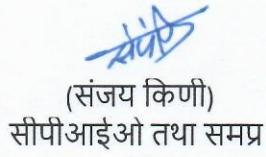 (संजय किणी)
सीपीआईओ तथा समप्र